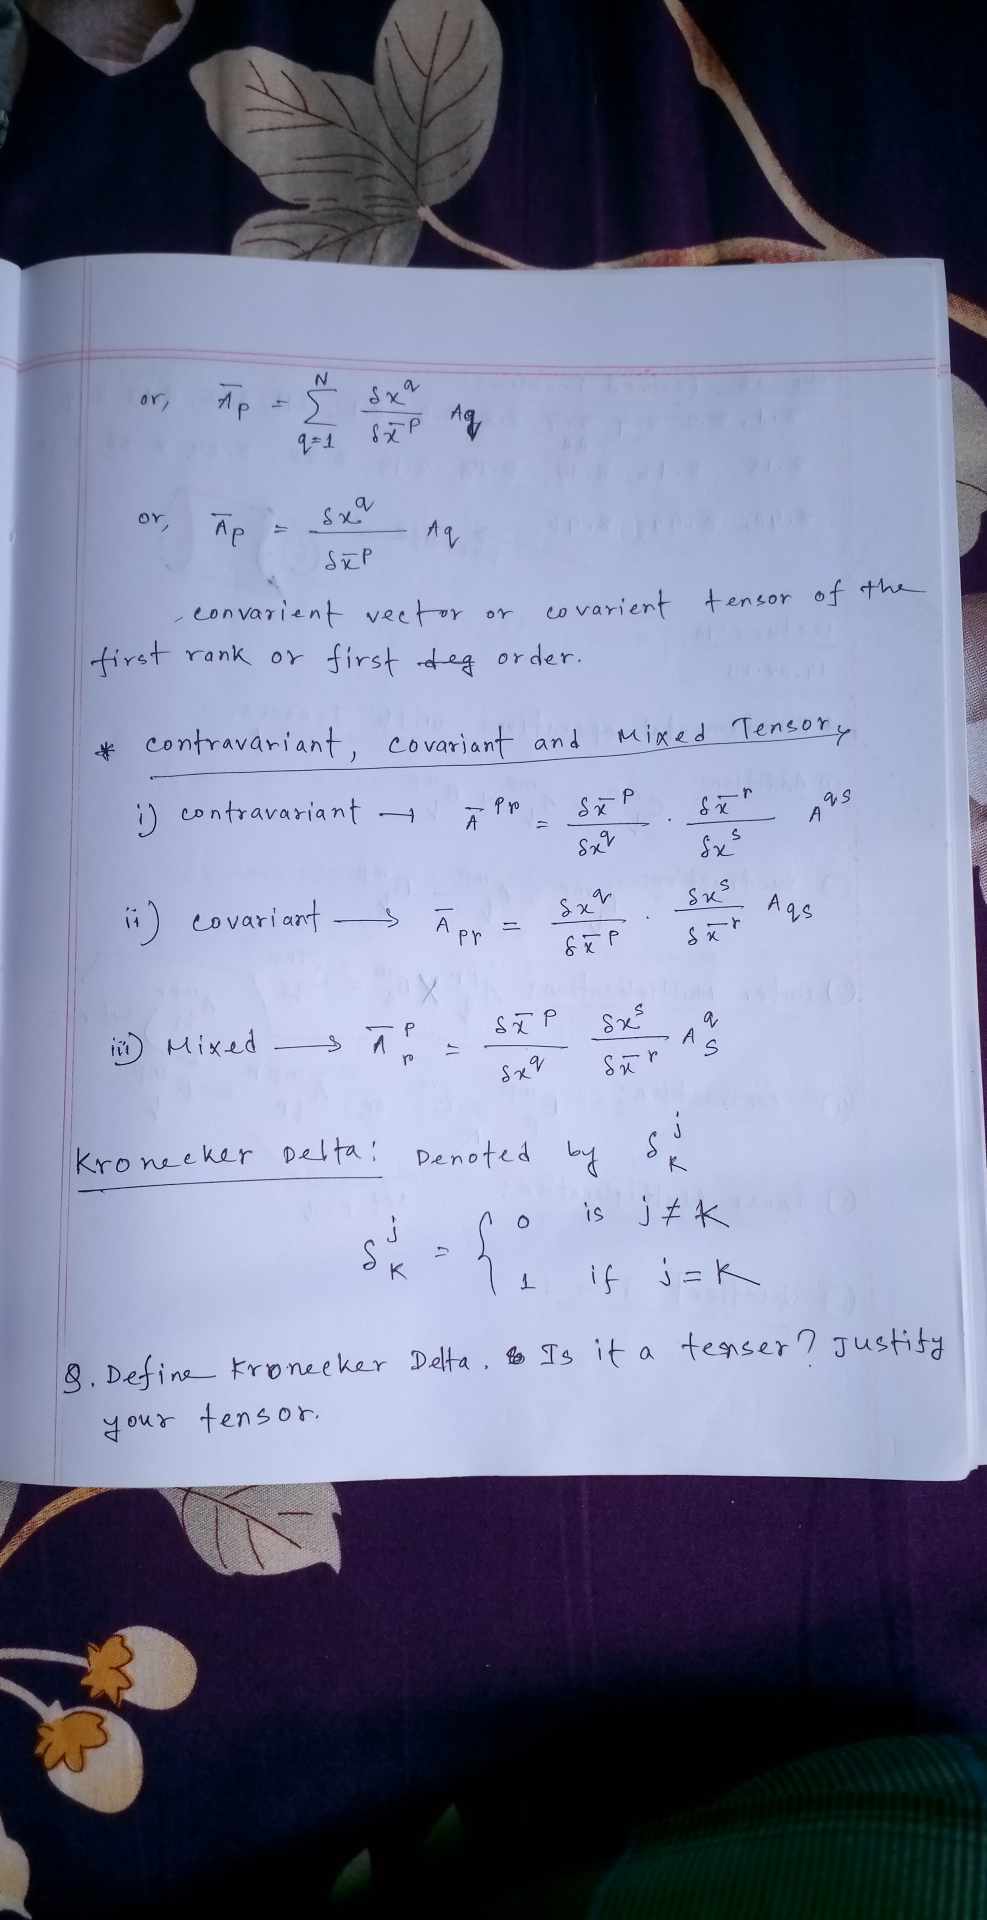 or, A̅p = Σ_{q=1}^{N} δx^q/δx̅^p Aq
or, A̅p = δx^q/δx̅^p Aq
convarient vector or covarient tensor of the
first rank or first deg order.
* contravariant, covariant and Mixed Tensor,
i) contravariant → A̅^{pr} = δx̅^p/δx^q . δx̅^r/δx^s A^{qs}
ii) covariant → A̅_{pr} = δx^q/δx̅^p . δx^s/δx̅^r A_{qs}
iii) Mixed → A̅^p_r = δx̅^p/δx^q δx^s/δx̅^r A^q_s
Kronecker Delta: Denoted by δ^j_K
δ^j_K = { 0 is j ≠ K
1 if j = K
Q. Define Kronecker Delta. Is it a tenser? Justify
your tensor.